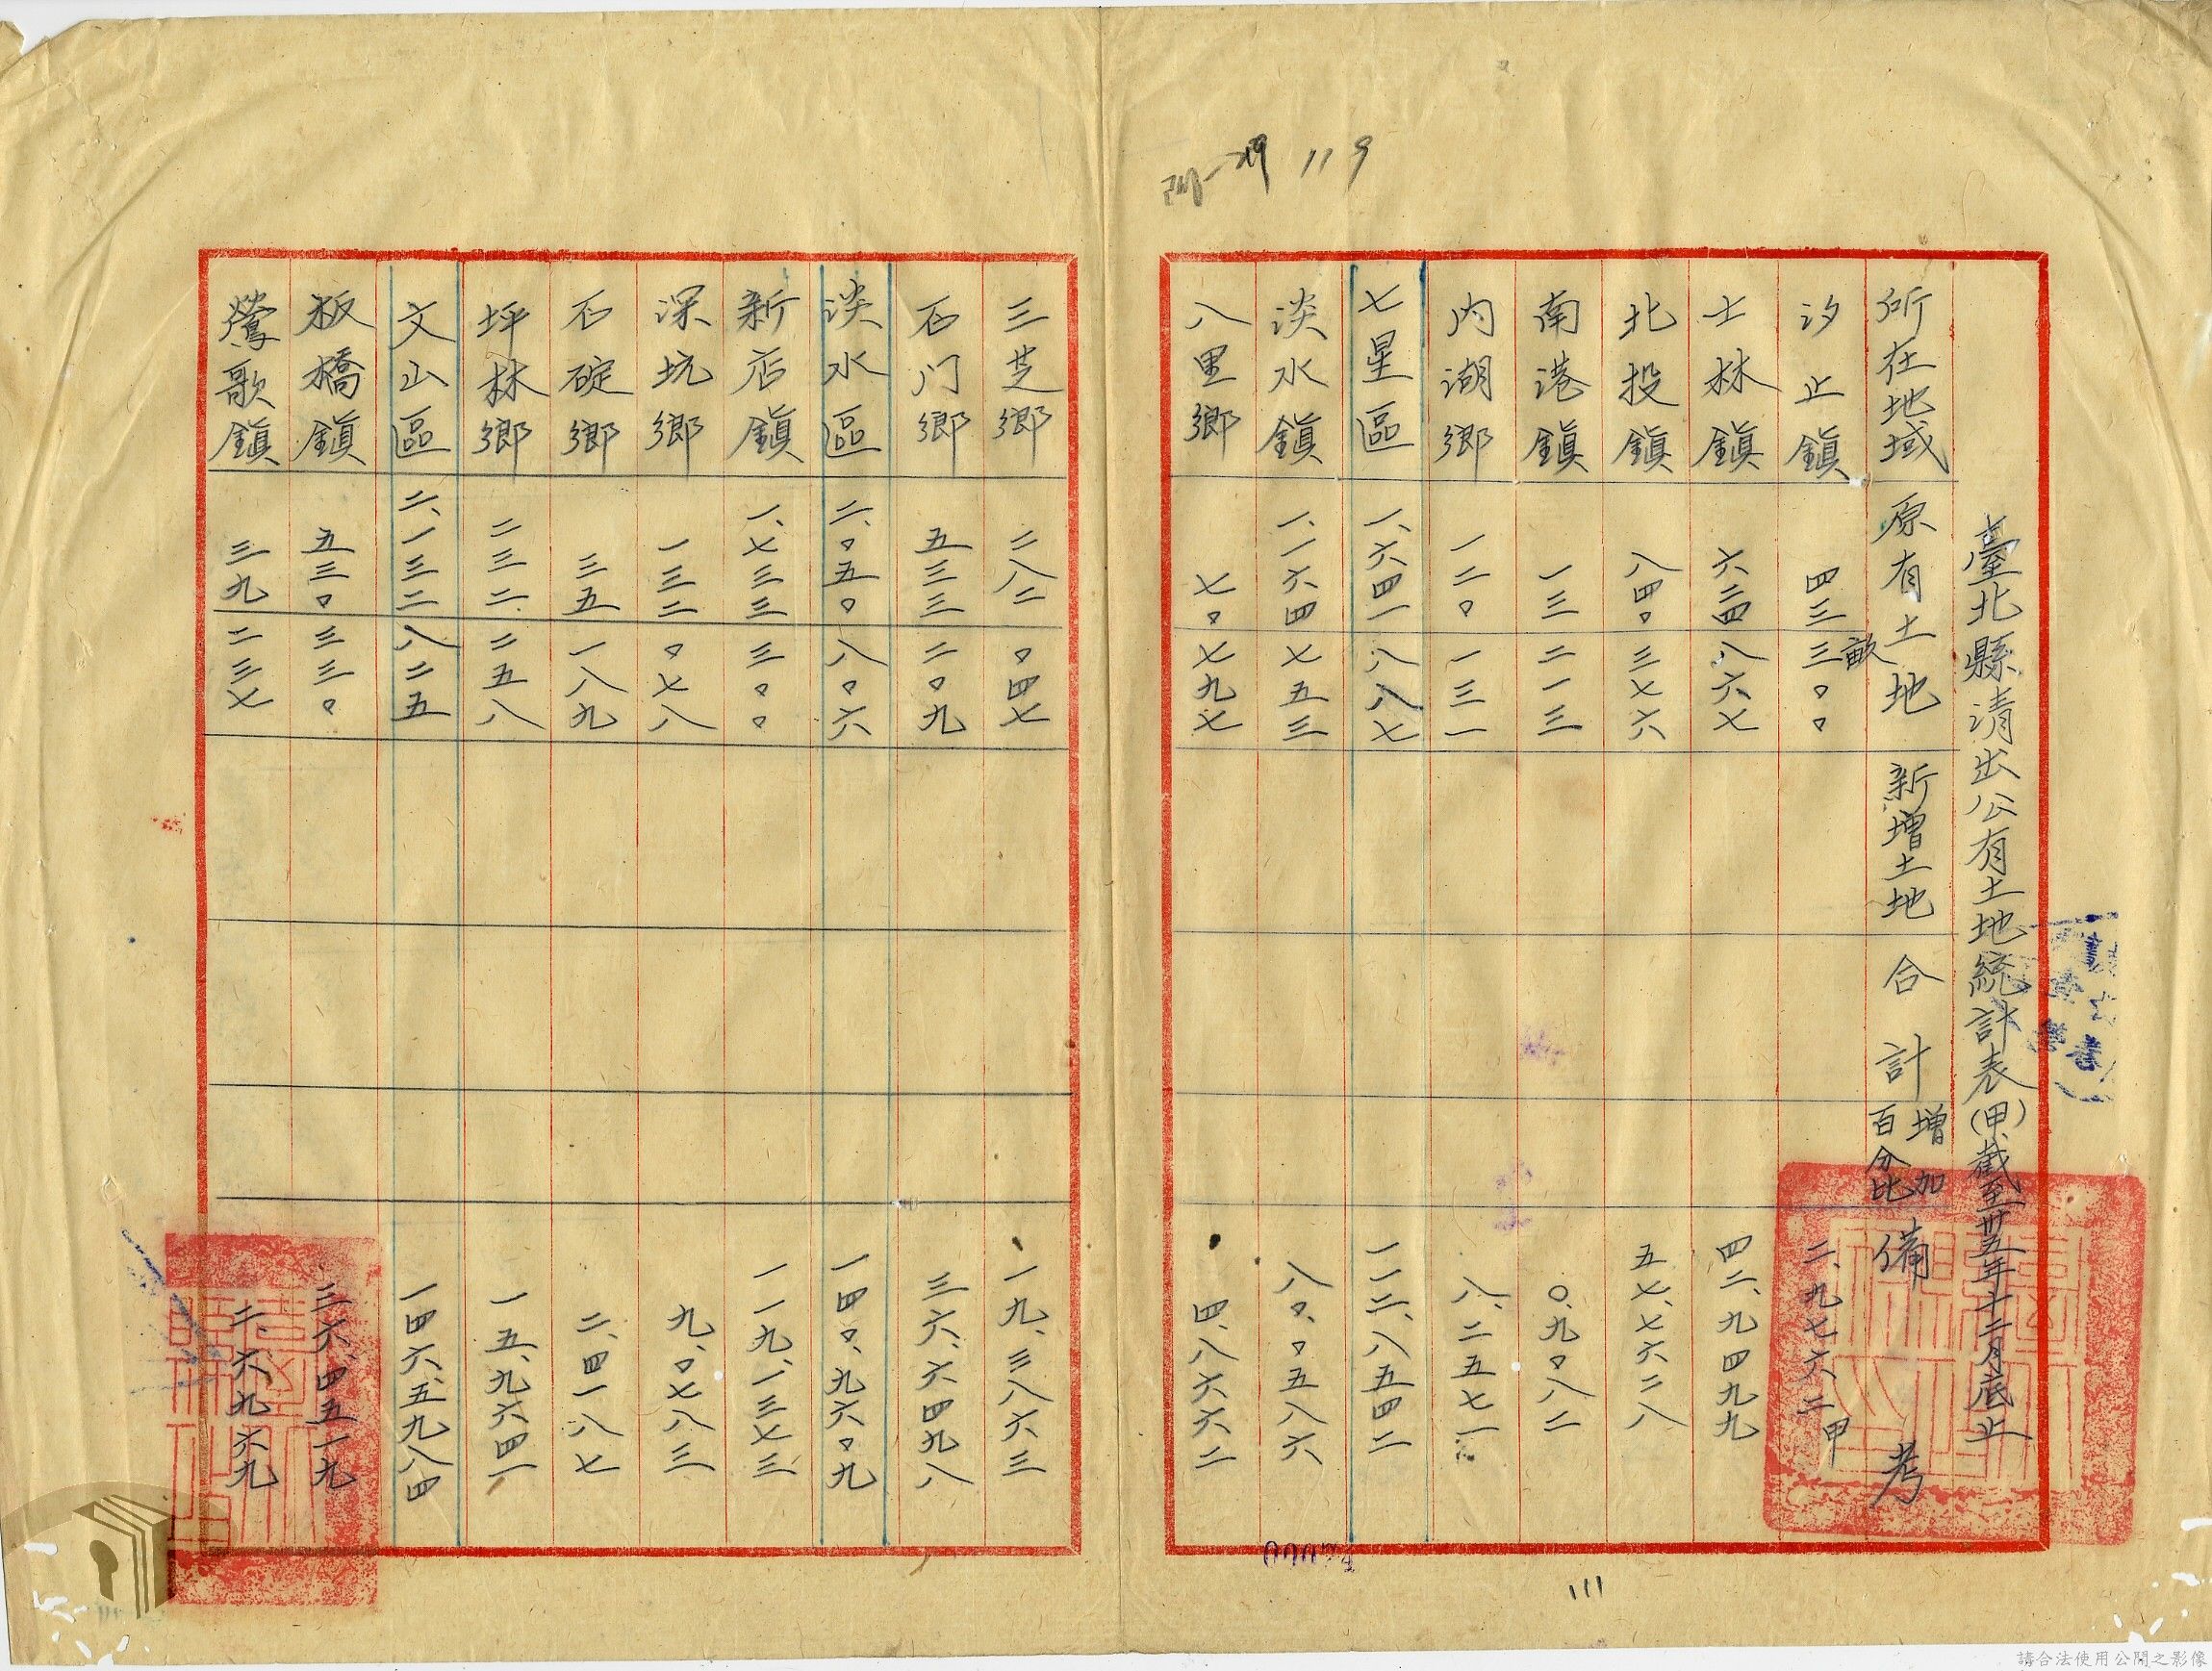 臺北縣清出公有土地統計表(甲)截至卅五年十二月底止
所在地域 原有土地 新增土地 合計 增加百分比 備考
汐止鎮 四三畝三〇〇 二、九七六二甲
士林鎮 六二四八六七 四二、九四九九
北投鎮 八四〇三七六 五七、七六二八
南港鎮 一三二一三 〇、九〇八二
內湖鄉 一二〇一三一 八、二五七一
七星區 一、六四一八八七 一一二、八五四二
淡水鎮 一、一六四七五三 八〇、〇五八六
八里鄉 七〇七九七 四、八六六二
三芝鄉 二八二〇四七 一九、三八六三
石门鄉 五三三二〇九 三六、六四九八
淡水區 二、〇五〇八〇六 一四〇、九六〇九
新店鎮 一、七三三三〇〇 一一九、一三七三
深坑鄉 一三二〇七八 九、〇七八三
石碇鄉 三五一八九 二、四一八七
坪林鄉 二三二二五八 一五、九六四一
文山區 二、一三二八二五 一四六、五九八四
板橋鎮 五三〇三三〇 三六、四五一九
鶯歌鎮 三九二三七 二、六九六九
119
111
請合法使用公開之影像